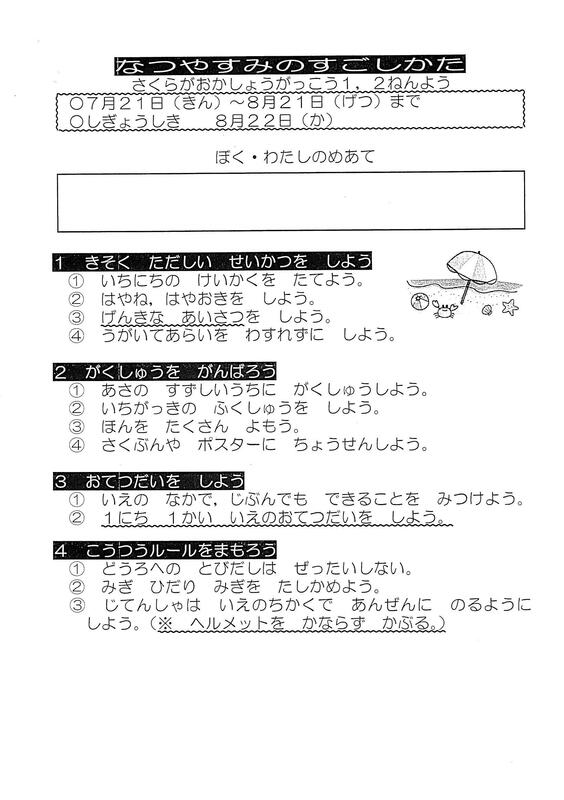 なつやすみのすごしかた
さくらがおかしょうがっこう１，２ねんよう
〇７月２１日（きん）～８月２１日（げつ）まで
〇しぎょうしき　　８月２２日（か）
ぼく・わたしのめあて
１　きそく　ただしい　せいかつを　しよう
①　いちにちの　けいかくを　たてよう。
②　はやね，はやおきを　しよう。
③　げんきな　あいさつを　しよう。
④　うがいてあらいを　わすれずに　しよう。
２　がくしゅうを　がんばろう
①　あさの　すずしいうちに　がくしゅうしよう。
②　いちがっきの　ふくしゅうを　しよう。
③　ほんを　たくさん　よもう。
④　さくぶんや　ポスターに　ちょうせんしよう。
３　おてつだいを　しよう
①　いえの　なかで，じぶんでも　できることを　みつけよう。
②　１にち　１かい　いえのおてつだいを　しよう。
４　こうつうルールをまもろう
①　どうろへの　とびだしは　ぜったいしない。
②　みぎ　ひだり　みぎを　たしかめよう。
③　じてんしゃは　いえのちかくで　あんぜんに　のるように
しよう。（※　ヘルメットを　かならず　かぶる。）